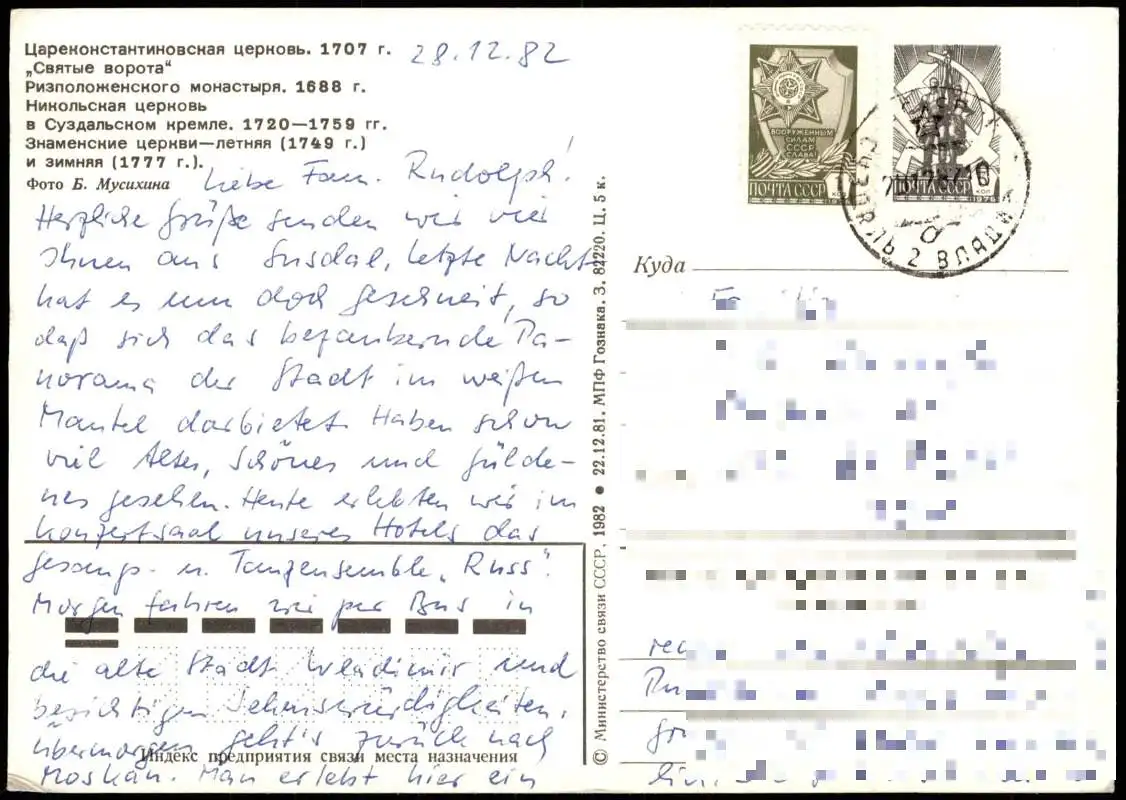 Цареконстантиновская церковь. 1707 г.
„Святые ворота“
Ризположенского монастыря. 1688 г.
Никольская церковь
в Суздальском кремле. 1720—1759 гг.
Знаменские церкви—летняя (1749 г.)
и зимняя (1777 г.).
Фото Б. Мусихина
28.12.82
Liebe Fam. Rudolph!
Herzliche Grüße senden wir vier
Ihnen aus Susdal, letzte Nacht
hat es nun doch geschneit, so
daß sich das bezaubernde Pa-
norama der Stadt im weißen
Mantel darbietet. Haben schon
viel Altes, Schönes und Gülde-
nes gesehen. Heute erlebten wir im
Konzertsaal unseres Hotels das
Gesangs- u. Tanzensemble „Russ“.
Morgen fahren wir per Bus in
die alte Stadt Wladimir und
besichtigen Sehenswürdigkeiten,
übermorgen geht's zurück nach
Moskau. Man erlebt hier ein
Индекс предприятия связи места назначения
© Министерство связи СССР, 1982 ● 22.12.81. МПФ Гознака. З. 82220. Ц. 5 к.
ВООРУЖЕННЫМ
СИЛАМ
СССР
СЛАВА!
ПОЧТА СССР
ПОЧТА СССР
КОП
1976
Куда